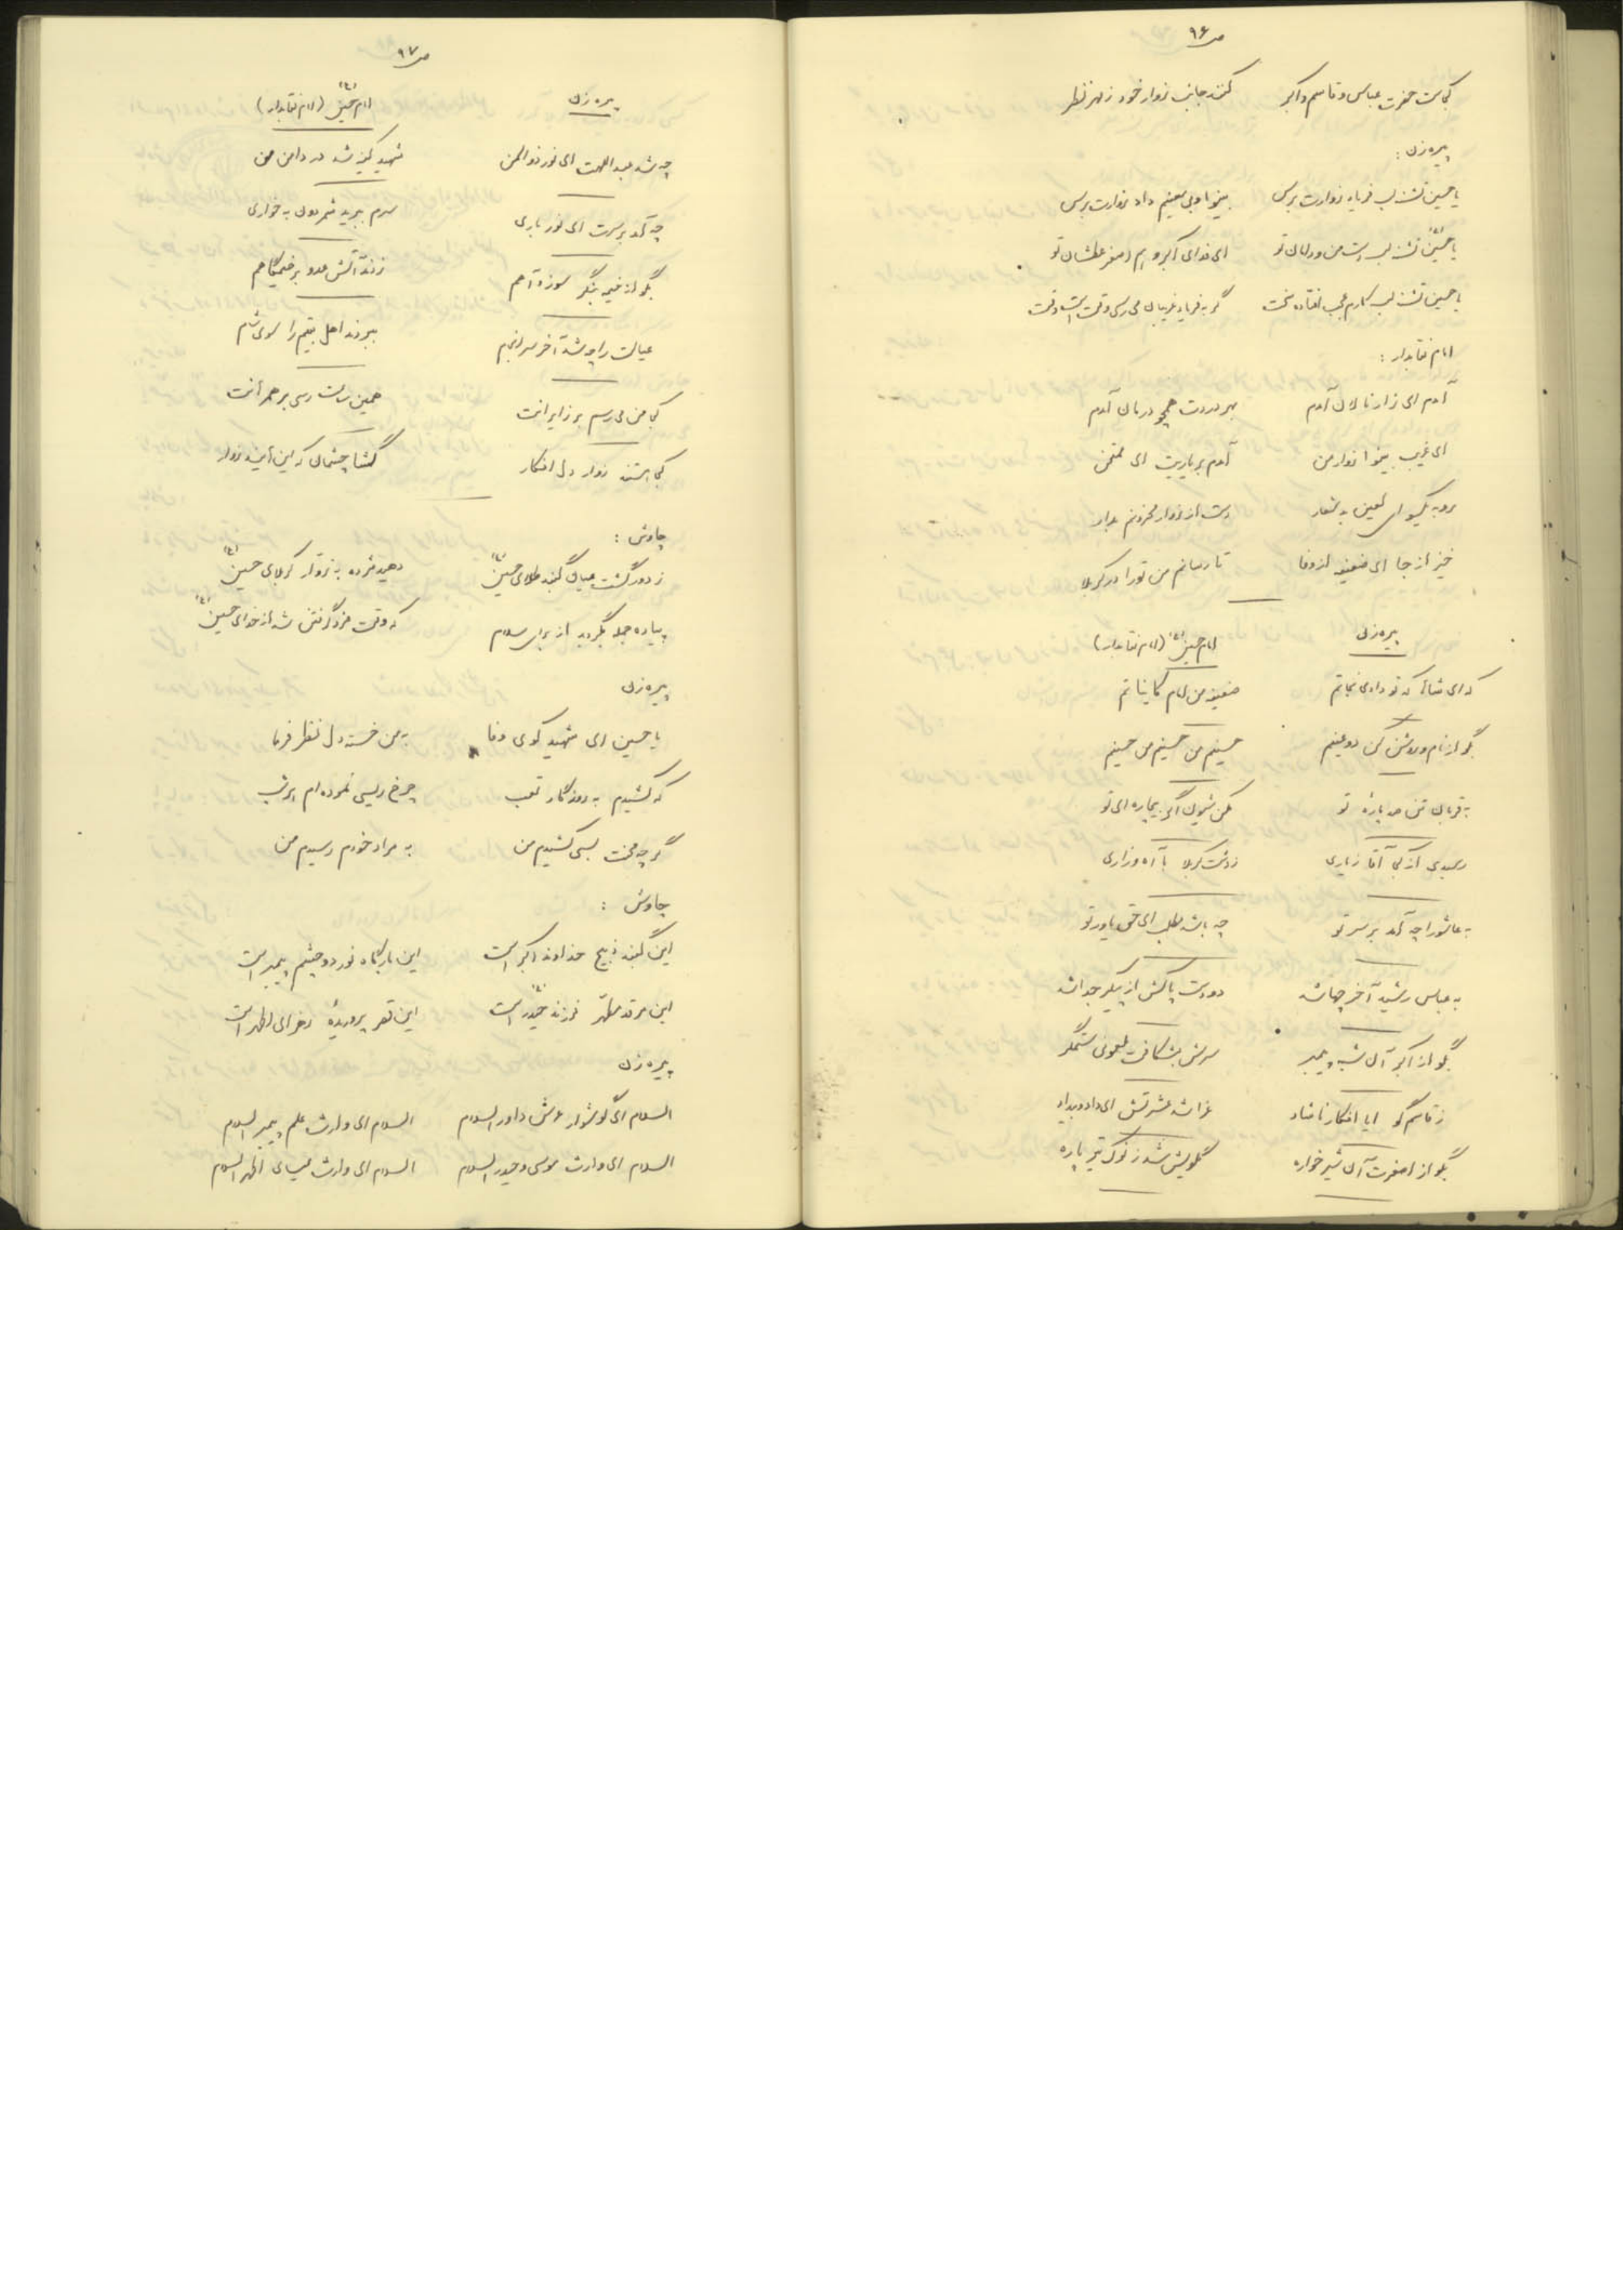 ص ۹۶
کجاست حضرت عباس و قاسم و اکبر کنند جانب زوار خود ز مهر نظر
پیره زن :
یا حسین تشنه لب فریاد زوارت برس بینوا و بی معینم داد زوارت برس
یا حسین تشنه لب دست من و دامان تو ای فدای اکبر و هم اصغر عطشان تو
یا حسین تشنه لب کارم عجب افتاده سخت گر به فریاد غریبان می رسی وقت است وقت
امام نقابدار :
آمدم ای زار نالان آمدم بهر دردت همچو درمان آمدم
ای غریب بینوا زوار من آمدم بر یاریت ای ممتحن
رو به یکسو ای لعین بد شعار دست از زوار محزونم بدار
خیز از جا ای ضعیفه از وفا تا رسانم من تو را در کربلا
پیره زن امام حسین (ع) (امام نقابدار)
که ای شاها که تو دادی نجاتم ضعیفه من امام کائناتم
بگو از نام و روشن کن دو عینم حسینم من حسینم من حسینم
به قربان تن صد پاره تو مکن شیون اگر بیچاره ای تو
رسیدی از کجا آقا به یاری ز دشت کربلا با آه و زاری
به عاشورا چه آمد بر سر تو چه باشد مطلب ای حق یاور تو
به عباس رشید آخر چها شد دو دست پاکش از پیکر جدا شد
بگو از اکبر آن شبه پیمبر سرش بشکافت ملعونی ستمگر
ز قاسم گو ایا افکار ناشاد عزا شد عشرتش ای داد و بیداد
بگو از اصغرت آن شیر خواره گلویش شد ز نوک تیر پاره
ص ۹۷
پیره زن امام حسین (ع) (امام نقابدار)
چه شد عبداللهت ای نور ذوالمن شهید کینه شد در دامن من
چه آمد بر سرت ای نور باری سرم ببرید شمر دون به خواری
بگو از خیمه بنگر سوز و آهم زند آتش عدو بر خیمگاهم
عیالت را چه شد آخر سرانجام ببردند اهل بیتم را سوی شام
کجا من می رسم بر زایرانت همین ساعت رسی بر همرهانت
کجا هستند زوار دل افکار گشا چشمان که این آیند زوار
چاوش :
ز دور گشت عیان گنبد طلای حسین (ع) دهید مژده به زوار کربلای حسین (ع)
پیاده جمله بگردید از برای سلام که وقت مزد گرفتن شد از خدای حسین (ع)
پیره زن
یا حسین ای شهید کوی وفا به من خسته دل نظر فرما
که کشیدم به روزگار تعب چرخ ریسی نموده ام هر شب
گر چه محنت بسی کشیدم من به مراد خودم رسیدم من
چاوش :
این گنبد ذبیح خداوند اکبر است این بارگاه نور دو چشم پیمبر است
این مرقد مطهر فرزند حیدر (ع) است این قصر پروریده زهرای اطهر است
پیره زن
السلام ای گوشوار عرش داور السلام السلام ای وارث علم پیمبر السلام
السلام ای وارث موسی و حیدر السلام السلام ای وارث عیسای اطهر السلام